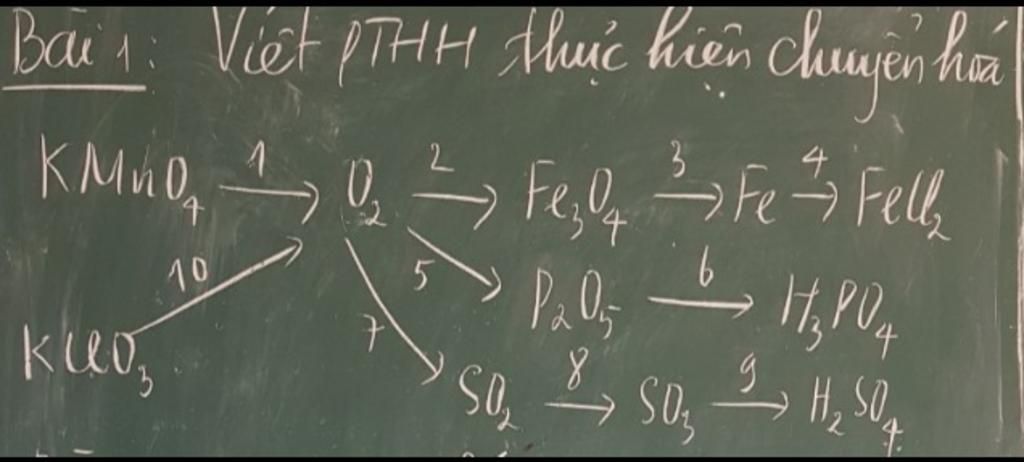 Bài 1: Viết PTHH thực hiện chuyển hoá
KMnO₄ →1 O₂ →2 Fe₃O₄ →3 Fe →4 FeCl₂
10 5 P₂O₅ →6 H₃PO₄
KClO₃ 7 SO₂ →8 SO₃ →9 H₂SO₄